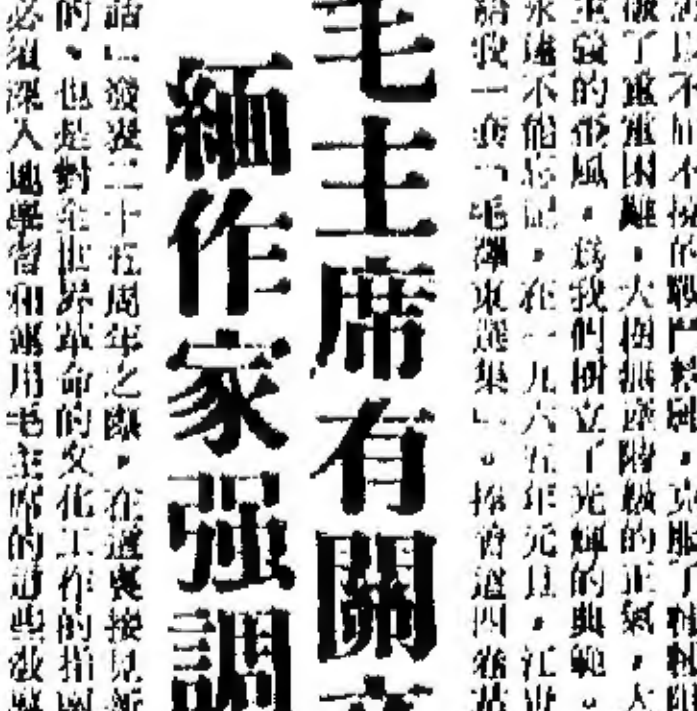 不屈不撓的戰鬥精神，克服了
做了重重困難，大樹無產階級的正氣，大
主義的歪風，爲我們樹立了光輝的典範。
永遠不能忘記，在一九六五年元旦，江
給我一套「毛澤東選集」。捧着這四卷
毛主席有關
緬作家强調
話」發表二十五周年之際，在這裏接見
的，也是對全世界革命的文化工作的指
必須深入地學習和運用毛主席的這些